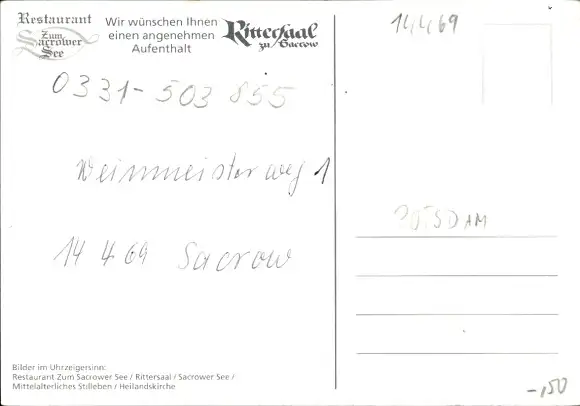 Restaurant
Zum
Sacrower
See
Wir wünschen Ihnen
einen angenehmen
Aufenthalt
Rittersaal
zu Sacrow
14469
0331-503 855
Weinmeisterweg 1
14 469 Sacrow
POTSDAM
Bilder im Uhrzeigersinn:
Restaurant Zum Sacrower See / Rittersaal / Sacrower See /
Mittelalterliches Stilleben / Heilandskirche
-,50